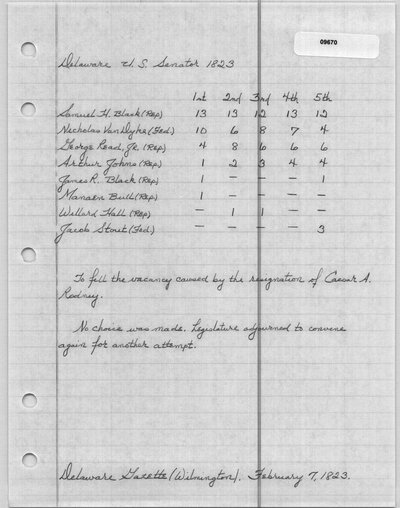 09670
Delaware U.S. Senator 1823
1st 2nd 3rd 4th 5th
Samuel H. Black (Rep) 13 13 12 13 12
Nicholas Van Dyke (Fed.) 10 6 8 7 4
George Read, Jr. (Rep) 4 8 6 6 6
Arthur Johns (Rep) 1 2 3 4 4
James R. Black (Rep) 1 — — — 1
Manaen Bull (Rep) 1 — — — —
Willard Hall (Rep) — 1 1 — —
Jacob Stout (Fed.) — — — — 3
To fill the vacancy caused by the resignation of Caesar A.
Rodney.
No choice was made. Legislature adjourned to convene
again for another attempt.
Delaware Gazette (Wilmington). February 7, 1823.